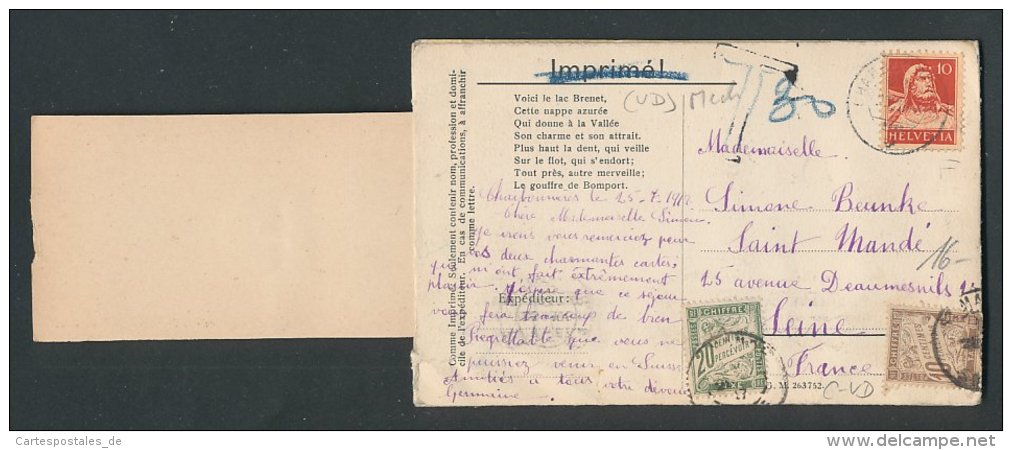 Imprimé!
Voici le lac Brenet,
Cette nappe azurée
Qui donne à la Vallée
Son charme et son attrait.
Plus haut la dent, qui veille
Sur le flot, qui s'endort;
Tout près, autre merveille;
Le gouffre de Bomport.
Comme Imprimé. Seulement contenir nom, profession et domi-
cile de l'expéditeur. En cas de communications, à affranchir
comme lettre.
(VD) Mech
T 30
10
HELVETIA
Charbonnières le 25-7-19
Chère Mademoiselle Simone
Je viens vous remercier pour
vos deux charmantes cartes,
qui m'ont fait extrêmement
plaisir. J'espère que ce séjour
Expéditeur:
vous fera beaucoup de bien
Regrettable que vous ne
puissiez venir en Suisse
Amitiés à tous votre dévouée
Germaine
Mademoiselle
Simone Beunke
Saint Mandé
25 avenue Daumesnils
Seine
France
16-
CHIFFRE
20
CENTIMES À
PERCEVOIR
TAXE
CHIFFRE
10
CENTIMES
B. M. 263752
C-VD
Cartespostales_de
www.delcampe.net